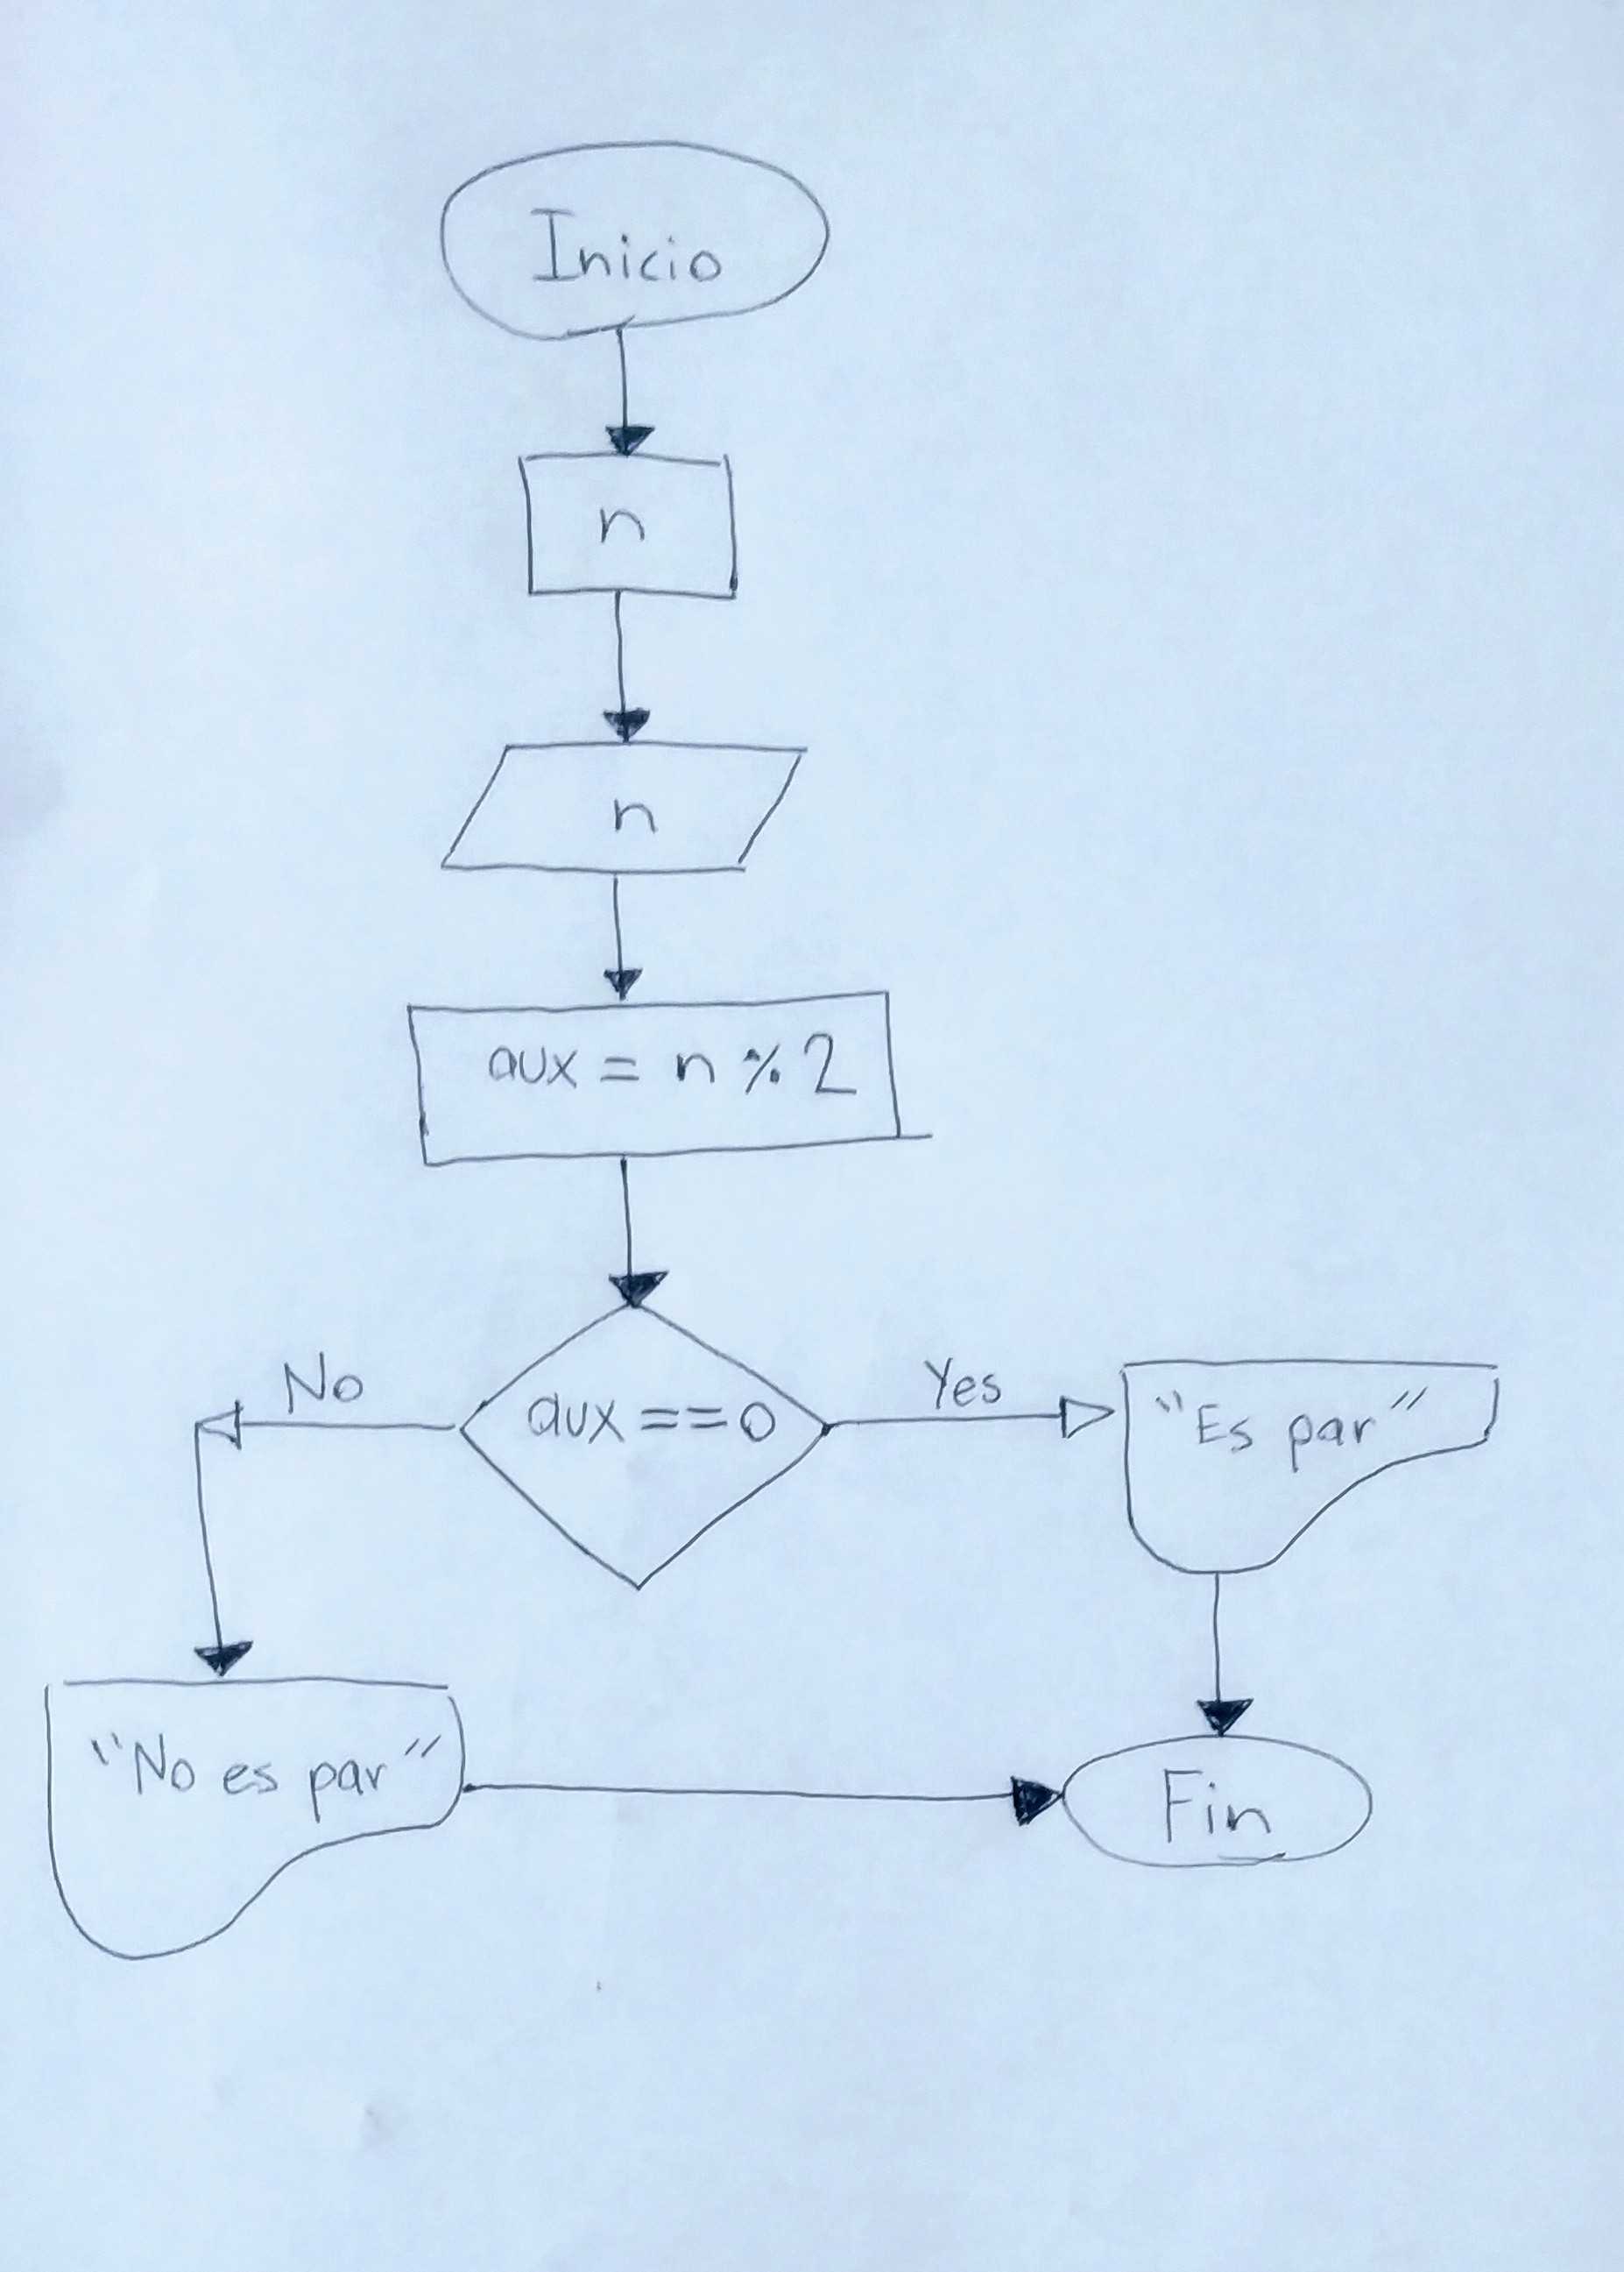 Inicio
n
n
aux = n % 2
No
aux == 0
Yes
"Es par"
"No es par"
Fin